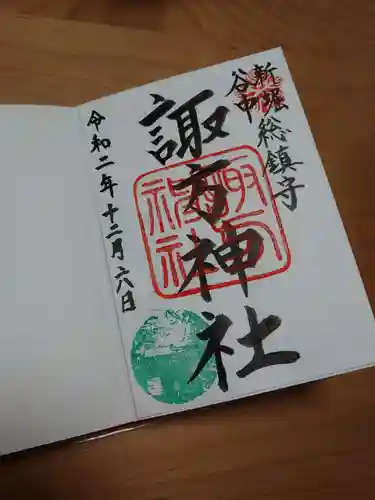 新堀
谷中
総鎮守
諏方神社
令和二年十二月六日
諏方
神社